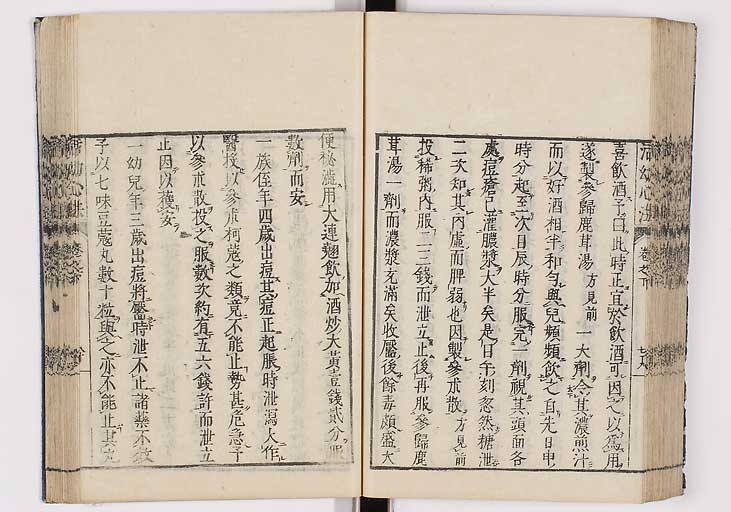 活幼心法 卷之下
喜飲酒予曰此時正宜於飲酒可因之以爲用
遂製參歸鹿茸湯方見前一大劑令其濃煎汁
而以好酒相半和勻與兒頻頻飲之自先日申
時分起至二次日辰時分服完一劑視其頭面各
處痘瘡已灌膿漿大半矣是日午刻忽然糖泄
二次知其內虛而脾弱也因製參朮散方見前
投稀粥內服二三錢而泄立止後再服參歸鹿
茸湯一劑而濃漿充滿矣收靨後餘毒頗盛大
便秘澁用大連翹飲加酒炒大黃壹錢貳分
數劑而安
一族侄年四歲出痘其痘正起脹時泄瀉大作
醫投以參朮柯蔻之類竟不能止勢甚危急予
以參朮散投之服數次約有五六錢許而泄立
止因以獲安
一幼兒年三歲出痘將靨時泄不止諸藥不效
予以七味豆蔻丸數十粒與之亦不能止其丸